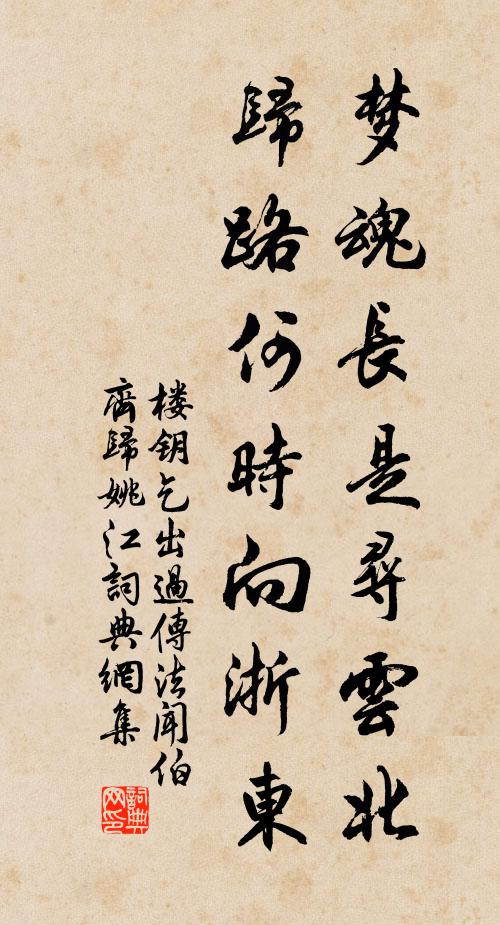 梦魂長是尋雲北
歸路何時向浙東
楼钥乞出過傳法闻伯
齊歸姚江詞典網集
詞典网印